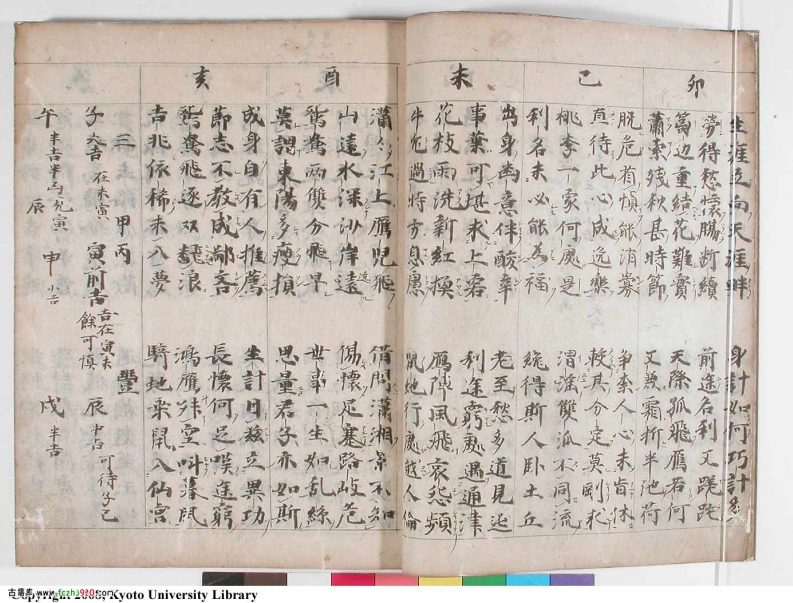 卯
生涯立向天涯畔 身計如何巧計
勞得愁懷腸斷續 前途名利又蹉跎
萬迎重結花難實 天際孤飛雁若何
蕭索殘秋甚時節 霜折半池荷
脫危省慎能消 爭奈人心未肯休
巳
直待此心成逸樂 分定莫剛求
桃李一家何處是 雙派不同流
利名未必能為福 縱得斯人卧土丘
出身幽意伴酸辛 老至愁多道見迍
未
事業可堪求上客 利途窮處遇通津
花枝雨洗新紅 雁陣風飛哀怨頻
牛兔過時方息慮 鼠地行處越人倫
瀟湘江上雁兒飛 借問瀟湘景不知
山遠水深沙岸遠 傷懷足蹇路岐危
酉
鴛鴦兩雙分飛早 世事一生如乱絲
莫謂東陽多瘦損 思量君子亦如斯
成身自有人推薦 生計日茲立異功
節志不教成鄙吝 長懷何足嘆途窮
亥
鴛鴦飛逐双飜浪 鴻雁舛空叫暮風
吉兆依稀未入夢 騎地乘鼠入仙宮
三 甲丙 豐
子 大吉 在未寅 寅 前吉 吉在寅未 餘可慎 辰 中吉 可待子巳
午 半吉半凶 九寅 辰 申 小吉 戌 半吉
古籍库 www.fozhu920.com
Copyright 2000, Kyoto University Library